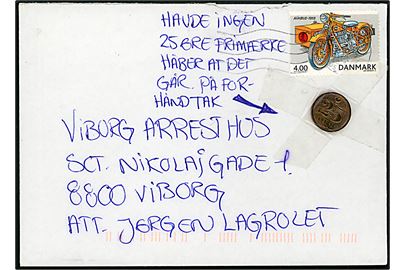 HAVDE INGEN
25 ØRE FRIMÆRKE
HÅBER AT DET
GÅR. PÅ FOR-
HÅND TAK
4.00 DANMARK
25
VIBORG ARRESTHUS
SCT. NIKOLAJGADE 1.
8800 VIBORG
ATT. JØRGEN LAGROLET